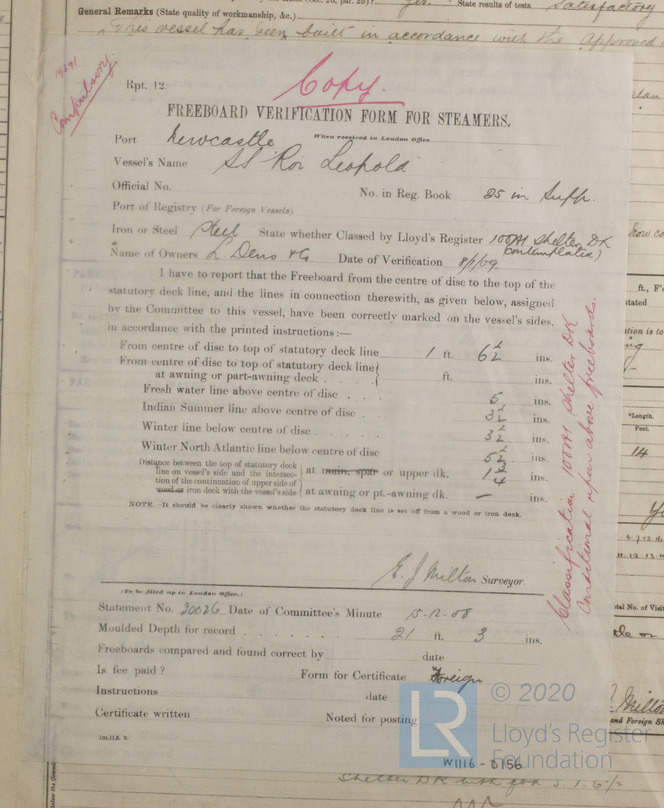 General Remarks (State quality of workmanship, &c.)
State results of tests Satisfactory
This vessel has been built in accordance with the approved
Compulsory
Copy.
Rpt. 12.
FREEBOARD VERIFICATION FORM FOR STEAMERS.
Port Newcastle When received in London Office
Vessel's Name SS Roi Leopold
Official No. No. in Reg. Book 25 in Supp.
Port of Registry (For Foreign Vessels)
Iron or Steel Steel State whether Classed by Lloyd's Register 100A1 Shelter DK
contemplated)
Name of Owners L Dens & Co. Date of Verification 8/1/09
I have to report that the Freeboard from the centre of disc to the top of the
statutory deck line, and the lines in connection therewith, as given below, assigned
by the Committee to this vessel, have been correctly marked on the vessel's sides,
in accordance with the printed instructions:—
From centre of disc to top of statutory deck line 1 ft. 6½ ins.
From centre of disc to top of statutory deck line
at awning or part-awning deck ft. ins.
Fresh water line above centre of disc 5 ins.
Indian Summer line above centre of disc 3½ ins.
Winter line below centre of disc 3½ ins.
Winter North Atlantic line below centre of disc 5½ ins.
Distance between the top of statutory deck
line on vessel's side and the intersec-
tion of the continuation of upper side of
wood or iron deck with the vessel's side
at main, spar or upper dk. ins.
at awning or pt.-awning dk. — ins.
NOTE It should be clearly shown whether the statutory deck line is set off from a wood or iron deck.
E. J. Milton Surveyor.
Classification 100A1 Shelter DK
Conditional upon above freeboards.
(To be filled up in London Office.)
Statement No. 20026 Date of Committee's Minute 15.12.08
Moulded Depth for record 21 ft. 3 ins.
Freeboards compared and found correct by date
Is fee paid? Form for Certificate Foreign
Instructions date
Certificate written Noted for posting
© 2020
LR
Lloyd's Register
Foundation
W1116-0156
Shelter DK